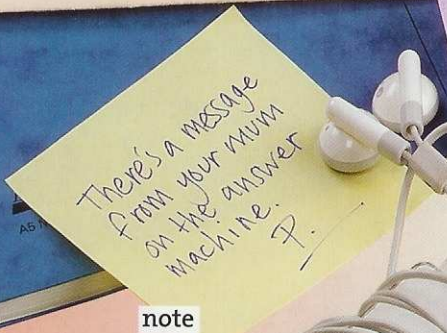 There's a message
from your mum
on the answer
machine.
P.
A5
note